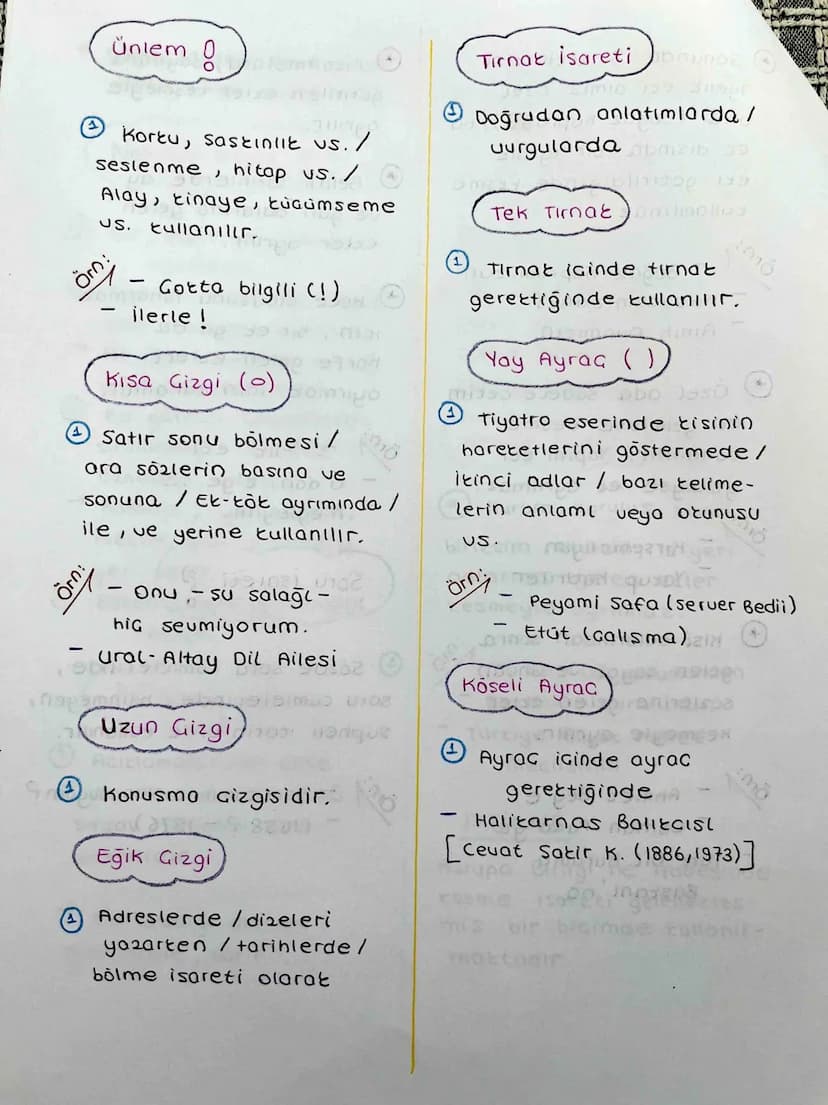 Ünlem !
1 Korku, saskınlık vs. /
seslenme, hitap vs. /
Alay, kinaye, kücümseme
vs. kullanılır.
Örn:
- Cokta bilgili (!)
- ilerle !
Kısa Cizgi (o)
1 Satır sonu bölmesi /
ara sözlerin basına ve
sonuna / Ek-kök ayrımında /
ile, ve yerine kullanılır.
Örn:
- Onu, -su salağı-
hic sevmiyorum.
- Ural-Altay Dil Ailesi
Uzun Cizgi
1 Konusma cizgisidir.
Eğik Cizgi
1 Adreslerde / dizeleri
yazarken / tarihlerde /
bölme isareti olarak
Tırnak isareti
1 Doğrudan anlatımlarda /
vurgularda
Tek Tırnak
1 Tırnak icinde tırnak
gerektiğinde kullanılır.
Yay Ayrac ( )
1 Tiyatro eserinde kisinin
hareketlerini göstermede /
ikinci adlar / bazı kelime-
lerin anlamı veya okunusu
vs.
Örn:
- Peyami Safa (Server Bedii)
- Etüt (calısma)
Köseli Ayrac
1 Ayrac icinde ayrac
gerektiğinde
- Halikarnas Balıkcısı
[Cevat Sakir K. (1886,1973)]